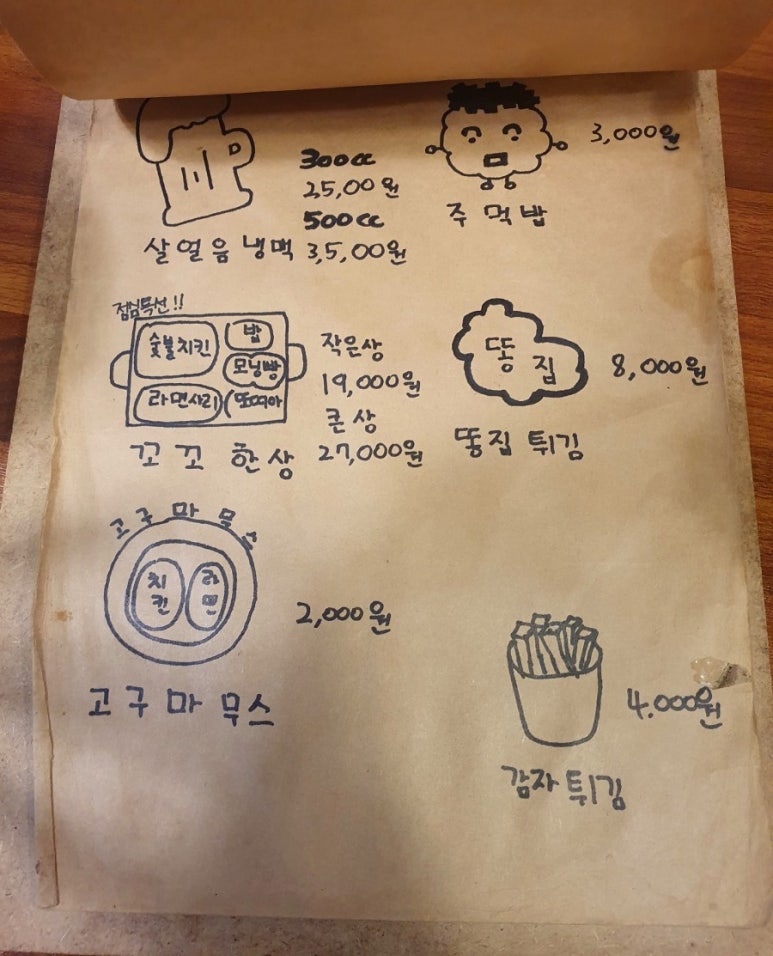 300cc
25,00원
500cc
살얼음냉맥 3,5,00원
3,000원
주먹밥
점심특선!!
숯불치킨
밥
모닝빵
라면사리
또띠아
꼬꼬 한상
작은상
19,000원
큰상
27,000원
똥집
8,000원
똥집 튀김
고구마무스
치킨
라면
2,000원
고구마 무스
4.000원
감자튀김